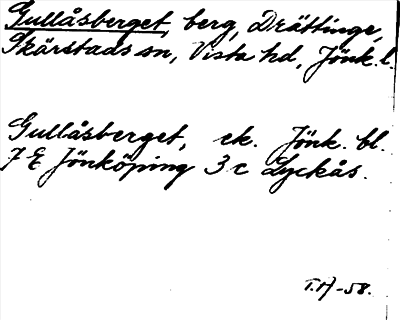 Gullåsberget, berg, Drättinge,
Skärstads sn, Vista hd, Jönk. l.
Gullåsberget, ek. Jönk. bl.
7 E Jönköping 3 c Lyckås.
T.H-58.